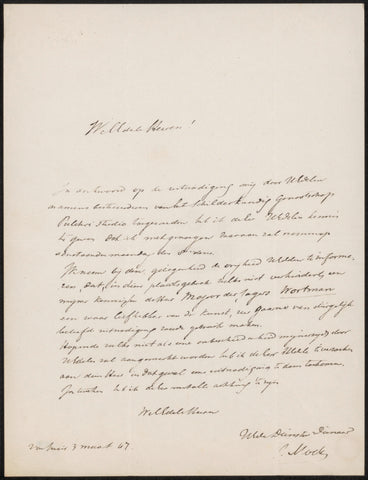 WelEdele Heeren!
In antwoord op de uitnodiging mij door UEdelen
namens bestuurderen van het Schilderkundig Genootschap
Pulchri Studio toegezonden heb ik de eer UEdelen kennis
te geven dat ik met genoegen daaraan zal
aanstaanden maandag den 8e dezer
Ik neem bij deze gelegenheid de vrijheid UEdelen te informe-
ren, dat, indien plaatsgebrek zulks niet verhindert, een
mijner kennissen de Heer Majoor der Jagers Wortman
een waar liefhebber van de kunst, zeer gaarne van dergelijk
beleefd uitnodiging zoude gebruik maken.
Hopende zulks niet als eene onbescheidenheid mijnerzijds door
UEdelen zal aangemerkt worden heb ik de Eer UEdele te verzoeken
aan dien Heer in dat geval eene uitnodiging te doen toekomen.
Intusschen heb ik de eer met alle achting te zijn
WelEdele Heeren
UEdele Dienstw Dienaar
Van huis 3 maart 47.